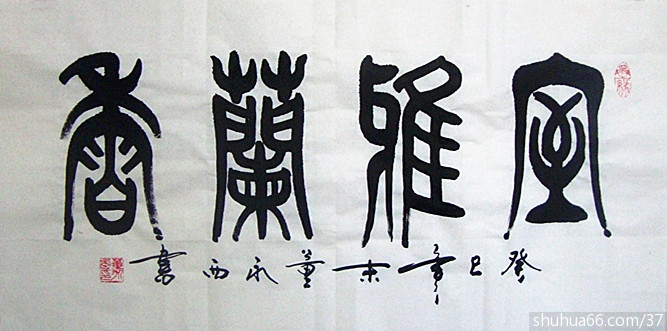 室雅蘭香
癸巳年末董永西書
shuhua66.com/37